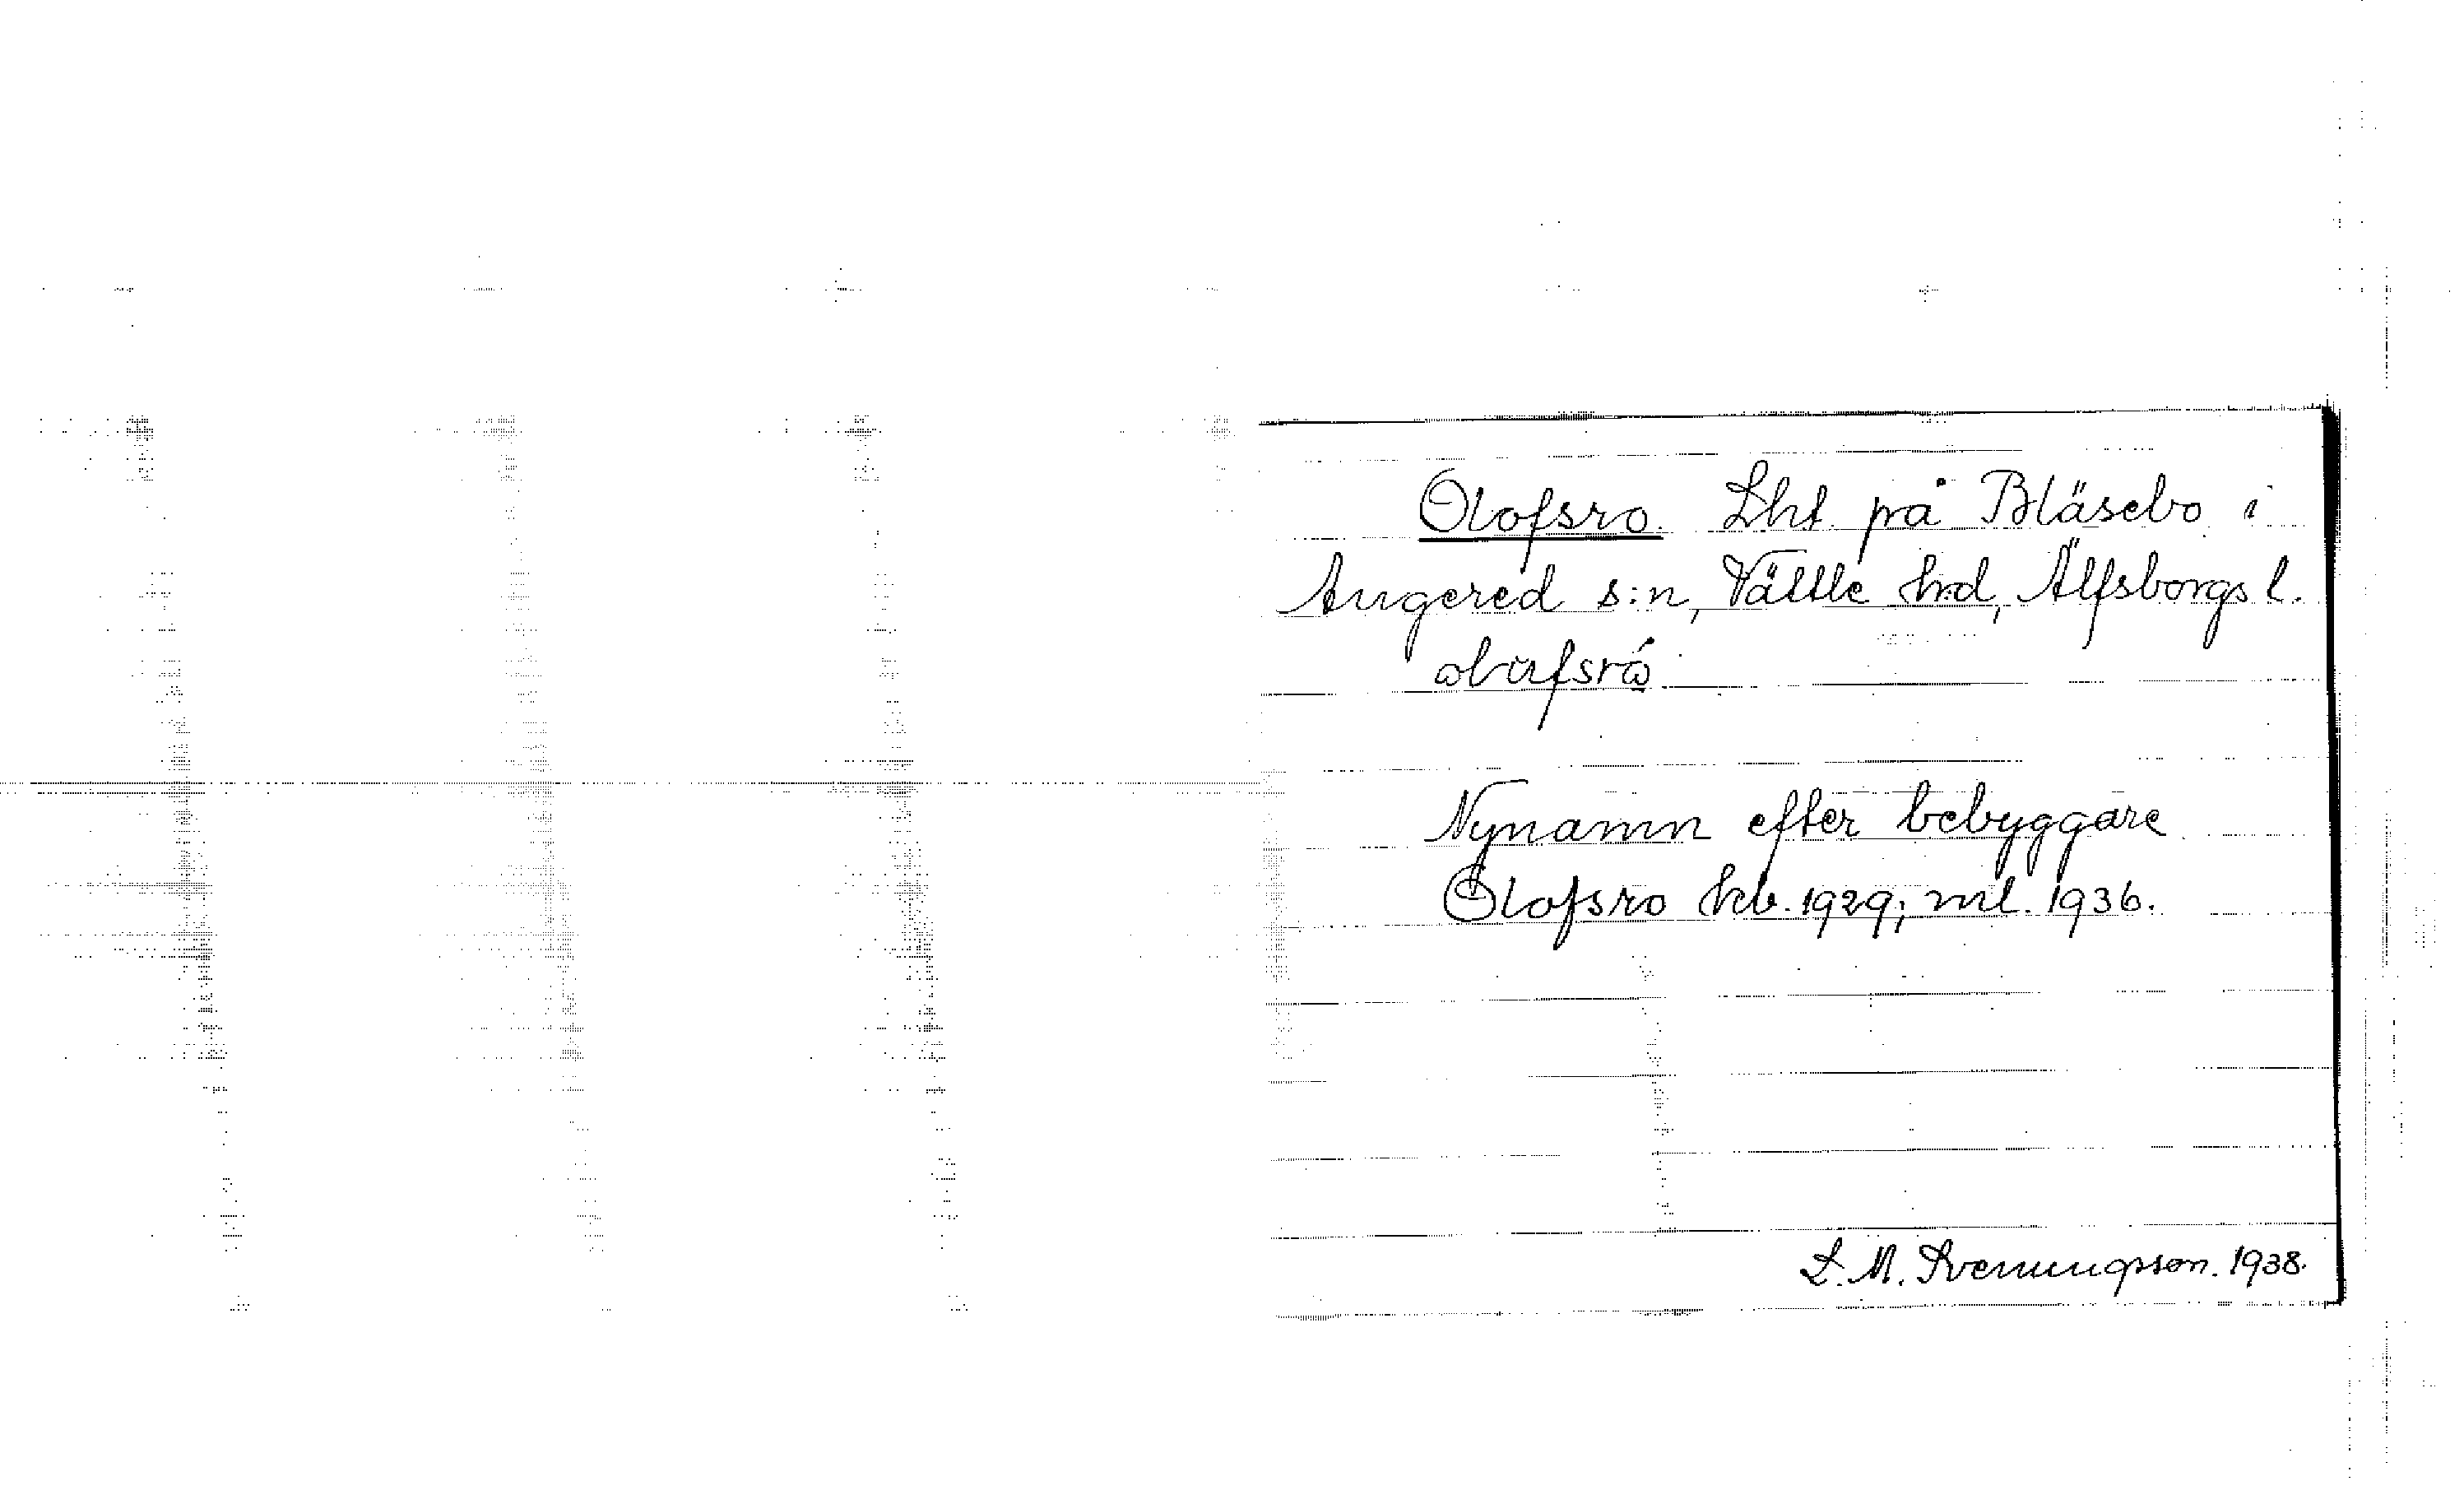 Olofsro. Lht. på Bläsebo i
Angered s:n, Vättle hd, Älfsborgs l.
Nynamn efter bebyggare
Olofsro kb. 1929; ml. 1936.
S. M. Svenungsson. 1938.